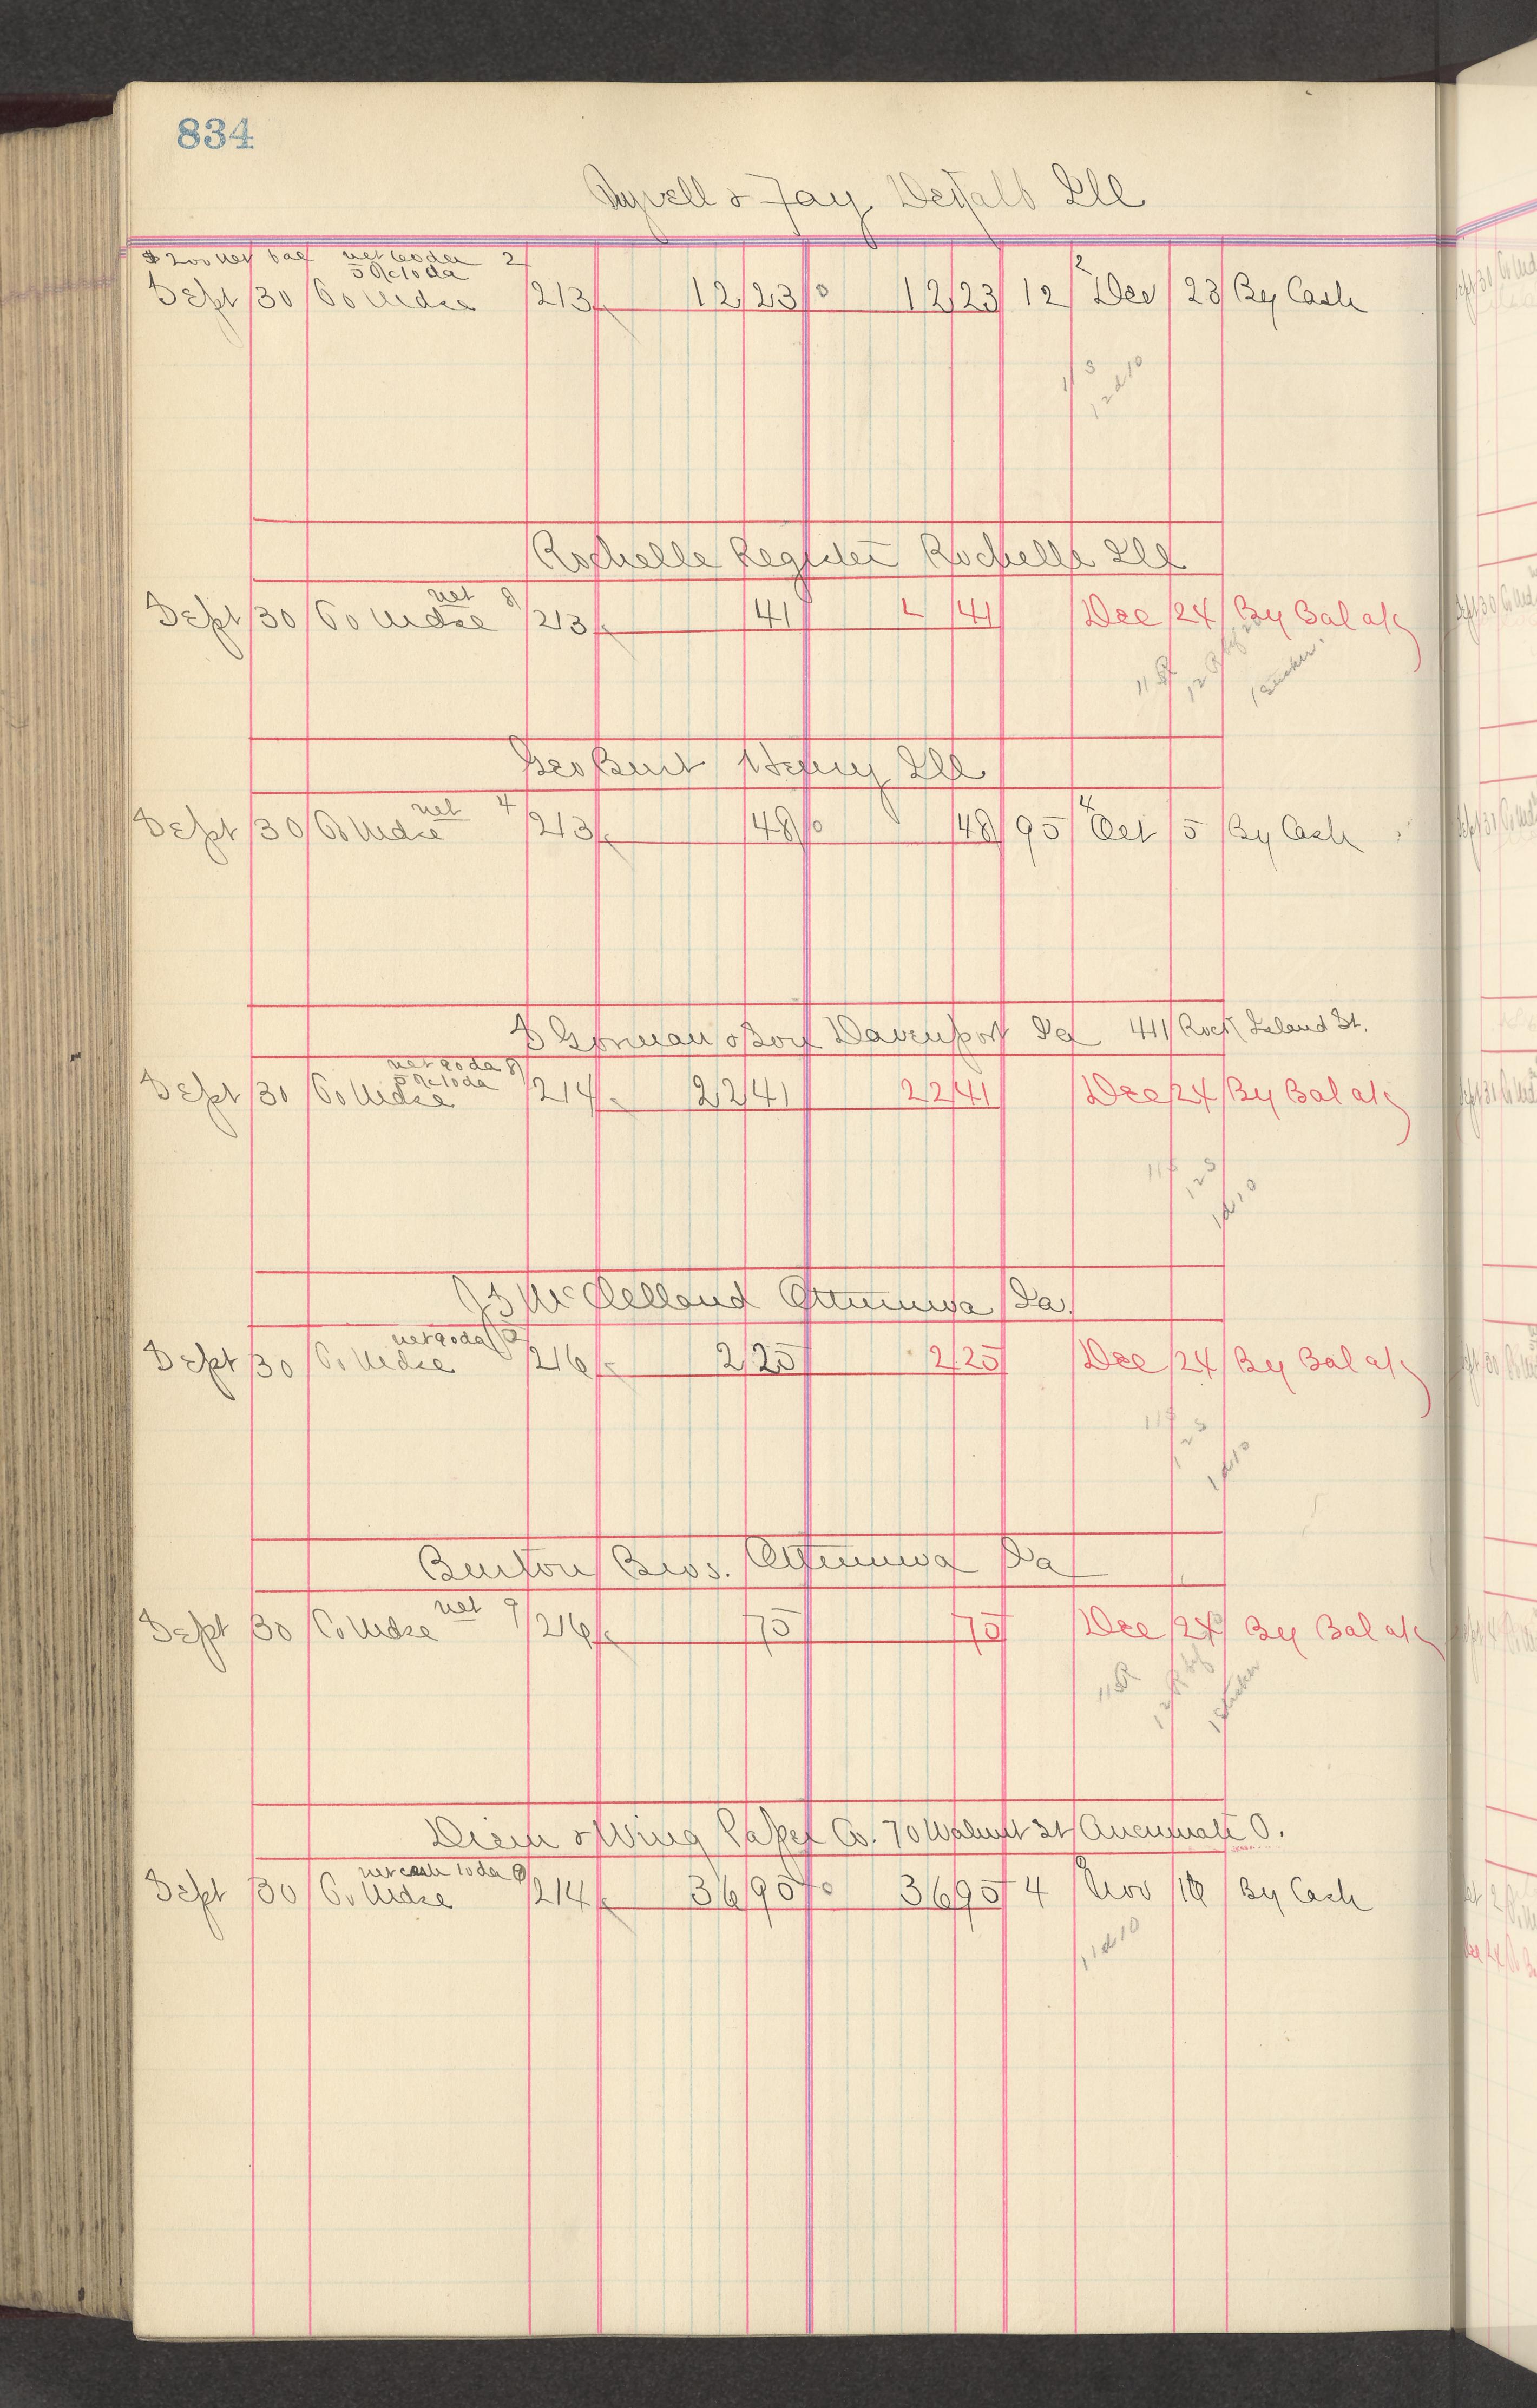 834
& Fay DeKalb Ill
$200 net bal net 60 da 2
5% 10 da
Sept 30 To Mdse 213 12 23 12 23 12 2 Dec 23 By Cash
11 S
12 d 10
Rochelle Register Rochelle Ill
net 8
Sept 30 To Mdse 213 41 41 Dec 24 By Bal a/c
11 R 12 R
1 Sticker
Geo Burt Henry Ill
net 4
Sept 30 To Mdse 213 48 48 95 4 Oct 5 By Cash
S Gorman & Son Davenport Ia 411 Rock Island St.
net 90 da 8
5% 10 da
Sept 30 To Mdse 214 22 41 22 41 Dec 24 By Bal a/c
11 S 12 S
1 d 10
McClelland Ottumwa Ia.
net 90 da
Sept 30 To Mdse 216 2 25 2 25 Dec 24 By Bal a/c
11 S
12 S
1 d 10
Burton Bros. Ottumwa Ia
net 9
Sept 30 To Mdse 216 75 75 Dec 24 By Bal a/c
11 R 12 R
1 Sticker
Diem & Wing Paper Co. 70 Walnut St Cincinnati O.
net cash 10 da 9
Sept 30 To Mdse 214 36 95 36 95 4 Nov By Cash
11 d 10